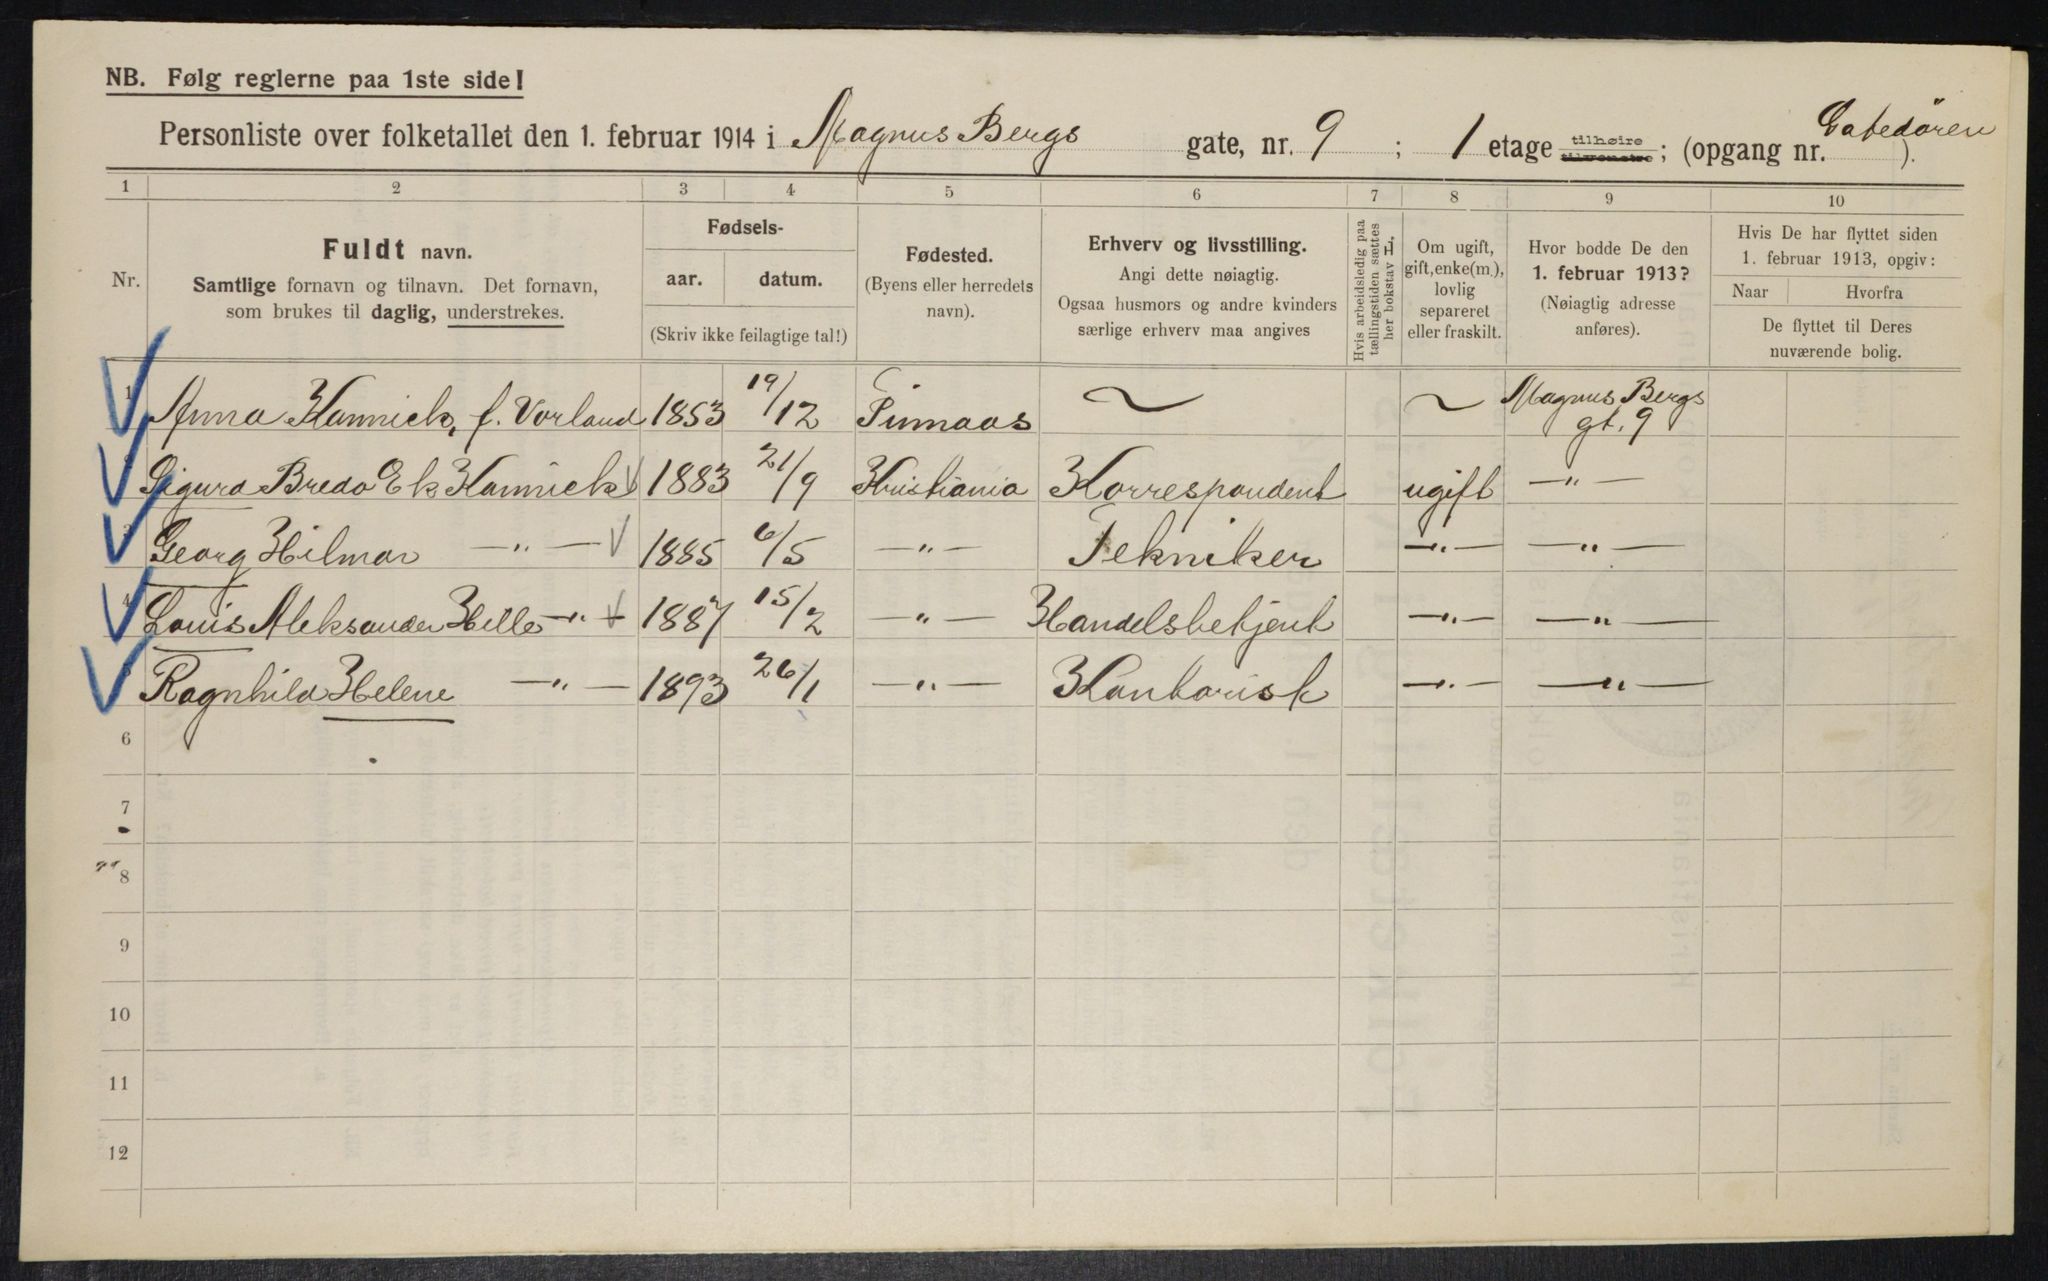 NB. Følg reglerne paa 1ste side!
Personliste over folketallet den 1. februar 1914 i Magnus Bergs gate, nr. 9 ; 1 etage tilhøire tilvenstre ; (opgang nr. Gatedøren ).
1 2 3 4 5 6 7 8 9 10
Nr.
Fuldt navn.
Samtlige fornavn og tilnavn. Det fornavn,
som brukes til daglig, understrekes.
Fødsels-
aar. datum.
(Skriv ikke feilagtige tal!)
Fødested.
(Byens eller herredets
navn).
Erhverv og livsstilling.
Angi dette nøiagtig.
Ogsaa husmors og andre kvinders
særlige erhverv maa angives
Hvis arbeidsledig paa
tællingstiden sættes
her bokstav L.
Om ugift,
gift, enke(m.),
lovlig
separeret
eller fraskilt.
Hvor bodde De den
1. februar 1913?
(Nøiagtig adresse
anføres).
Hvis De har flyttet siden
1. februar 1913, opgiv:
Naar Hvorfra
De flyttet til Deres
nuværende bolig.
1 Anna Kannick, f. Vorland 1853 19/12 ~ ~ Magnus Bergs
gt. 9
2 Sigurd Bredo Ek Kannick 1883 21/9 Kristiania Korrespondent ugift —"—
3 Georg Hilmar —"— 1885 6/5 —"— Tekniker —"— —"—
4 Louis Aleksander Helle —"— 1887 15/2 —"— Handelsbetjent —"— —"—
5 Ragnhild Helene —"— 1893 26/1 —"— Kontorisk —"— —"—
6
7
8
9
10
11
12